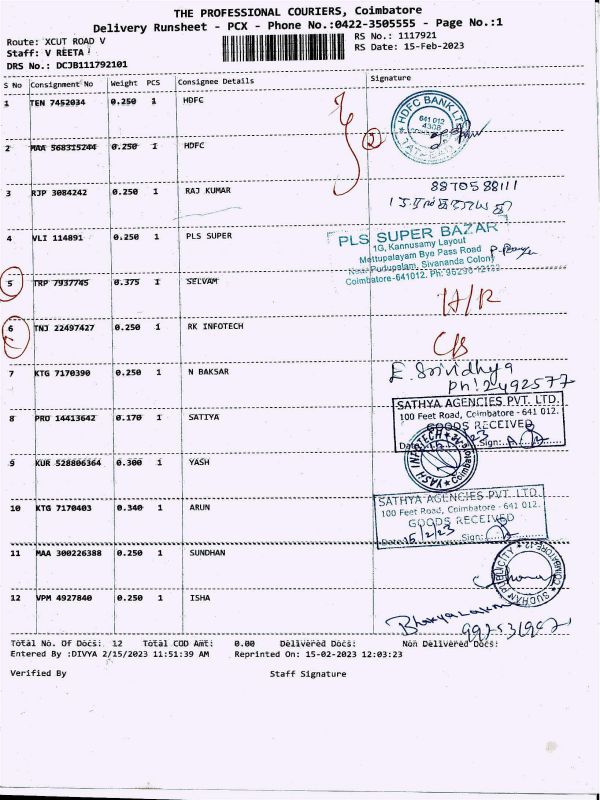 THE PROFESSIONAL COURIERS, Coimbatore
Delivery Runsheet - PCX - Phone No.:0422-3505555 - Page No.:1
Route: XCUT ROAD V
RS No.: 1117921
Staff: V REETA
RS Date: 15-Feb-2023
DRS No.: DCJB111792101
S No Consignment No Weight PCS Consignee Details Signature
1 TEN 7452034 0.250 1 HDFC
HDFC BANK LTD
641 012
2
2 MAA 568315244 0.250 1 HDFC
3 RJP 3084242 0.250 1 RAJ KUMAR
8870588111
4 VLI 114891 0.250 1 PLS SUPER
PLS SUPER BAZAR
1G, Kannusamy Layout
Mettupalayam Bye Pass Road
Pudupalam, Sivananda Colony
Coimbatore-641012, Ph:
5 TRP 7937745 0.375 1 SELVAM
6 TNJ 22497427 0.250 1 RK INFOTECH
7 KTG 7170390 0.250 1 N BAKSAR
E. Srividhya
Ph: 2492577
8 PRO 14413642 0.170 1 SATIYA
SATHYA AGENCIES PVT. LTD.
100 Feet Road, Coimbatore - 641 012.
GOODS RECEIVED
Sign:
9 KUR 528806364 0.300 1 YASH
YASH INFOTECH
Coimbatore
10 KTG 7170403 0.340 1 ARUN
SATHYA AGENCIES PVT. LTD.
100 Feet Road, Coimbatore - 641 012.
GOODS RECEIVED
Date 15/2/23 Sign:
11 MAA 300226388 0.250 1 SUNDHAN
SUDHAN PUBLICITY
COIMBATORE-12
12 VPM 4927840 0.250 1 ISHA
Total No. Of Docs: 12 Total COD Amt: 0.00 Delivered Docs: Non Delivered Docs:
Entered By :DIVYA 2/15/2023 11:51:39 AM Reprinted On: 15-02-2023 12:03:23
Verified By Staff Signature